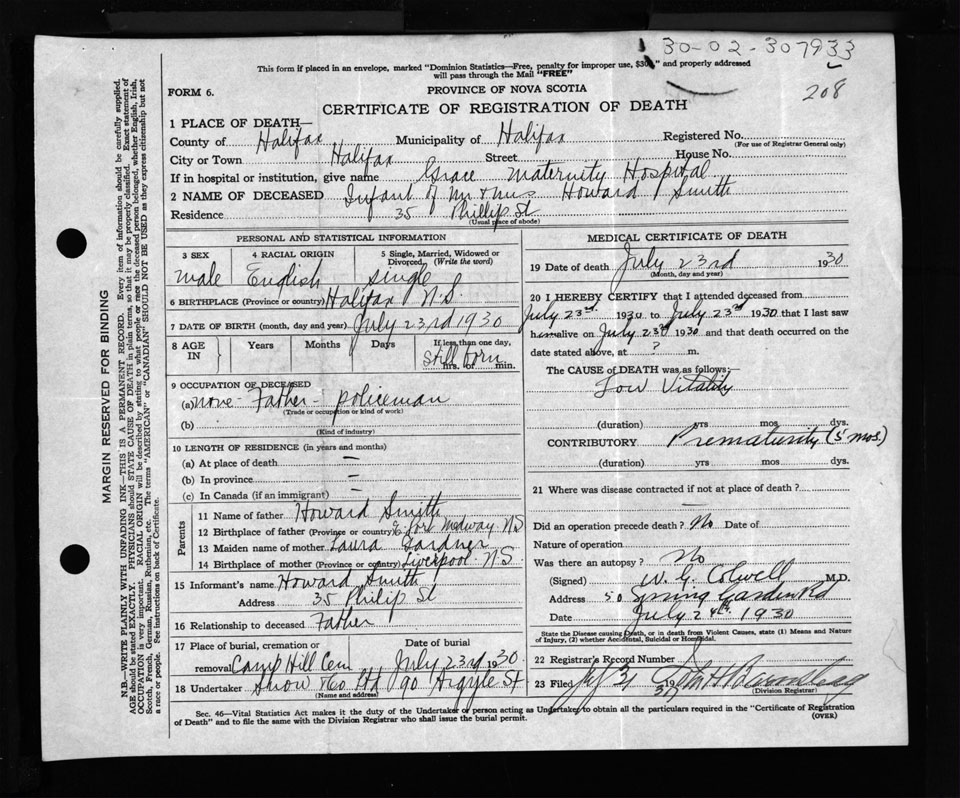 30-02-307933
208
This form if placed in an envelope, marked "Dominion Statistics—Free, penalty for improper use, $300" and properly addressed
will pass through the Mail "FREE"
FORM 6.
PROVINCE OF NOVA SCOTIA
CERTIFICATE OF REGISTRATION OF DEATH
1 PLACE OF DEATH—
County of Halifax Municipality of Halifax Registered No.
(For use of Registrar General only)
City or Town Halifax Street House No.
If in hospital or institution, give name Grace Maternity Hospital
2 NAME OF DECEASED Infant of Mr & Mrs Howard Smith
Residence 35 Phillip St
(Usual place of abode)
PERSONAL AND STATISTICAL INFORMATION
3 SEX 4 RACIAL ORIGIN 5 Single, Married, Widowed or
Divorced. (Write the word)
male English single
6 BIRTHPLACE (Province or country) Halifax N.S.
7 DATE OF BIRTH (month, day and year) July 23rd 1930
8 AGE IN Years Months Days If less than one day,
Still born
hrs. or min.
9 OCCUPATION OF DECEASED
(a) none - Father - policeman
(Trade or occupation or kind of work)
(b)
(Kind of industry)
10 LENGTH OF RESIDENCE (in years and months)
(a) At place of death —
(b) In province —
(c) In Canada (if an immigrant) —
Parents
11 Name of father Howard Smith
12 Birthplace of father (Province or country) Port Medway N.S
13 Maiden name of mother Laura Gardner
14 Birthplace of mother (Province or country) Liverpool N.S.
15 Informant's name Howard Smith
Address 35 Philip St
16 Relationship to deceased Father
17 Place of burial, cremation or Date of burial
removal Camp Hill Cem July 23rd 1930
18 Undertaker Snow & Co Ltd 90 Argyle St
(Name and address)
MEDICAL CERTIFICATE OF DEATH
19 Date of death July 23rd 1930
(Month, day and year)
20 I HEREBY CERTIFY that I attended deceased from
July 23rd 1930 to July 23rd 1930 that I last saw
him alive on July 23d 1930 and that death occurred on the
date stated above, at ? m.
The CAUSE of DEATH was as follows:
Low Vitality
(duration) yrs mos. dys.
CONTRIBUTORY Prematurity (5 mos.)
(duration) yrs mos dys.
21 Where was disease contracted if not at place of death?
—
Did an operation precede death? No Date of
Nature of operation
Was there an autopsy? No
(Signed) W. G. Colwell M.D.
Address 50 Spring Garden Rd
Date July 24th 1930
State the Disease causing Death, or in death from Violent Causes, state (1) Means and Nature
of Injury, (2) whether Accidental, Suicidal or Homicidal.
22 Registrar's Record Number
23 Filed July 31 19
(Division Registrar)
Sec. 46—Vital Statistics Act makes it the duty of the Undertaker or person acting as Undertaker to obtain all the particulars required in the "Certificate of Registration
of Death" and to file the same with the Division Registrar who shall issue the burial permit. (OVER)
MARGIN RESERVED FOR BINDING
N.B.—WRITE PLAINLY WITH UNFADING INK—THIS IS A PERMANENT RECORD. Every item of information should be carefully supplied.
AGE should be stated EXACTLY. PHYSICIANS should STATE CAUSE OF DEATH in plain terms, so that it may be properly classified. Exact statement of
OCCUPATION is very important. RACIAL ORIGIN will be described by stating to what people or race the deceased person belonged, whether English, Irish,
Scotch, French, German, Russian, Ruthenian, etc. The terms "AMERICAN" or "CANADIAN" SHOULD NOT BE USED as they express citizenship but not
a race or people. See instructions on back of Certificate.